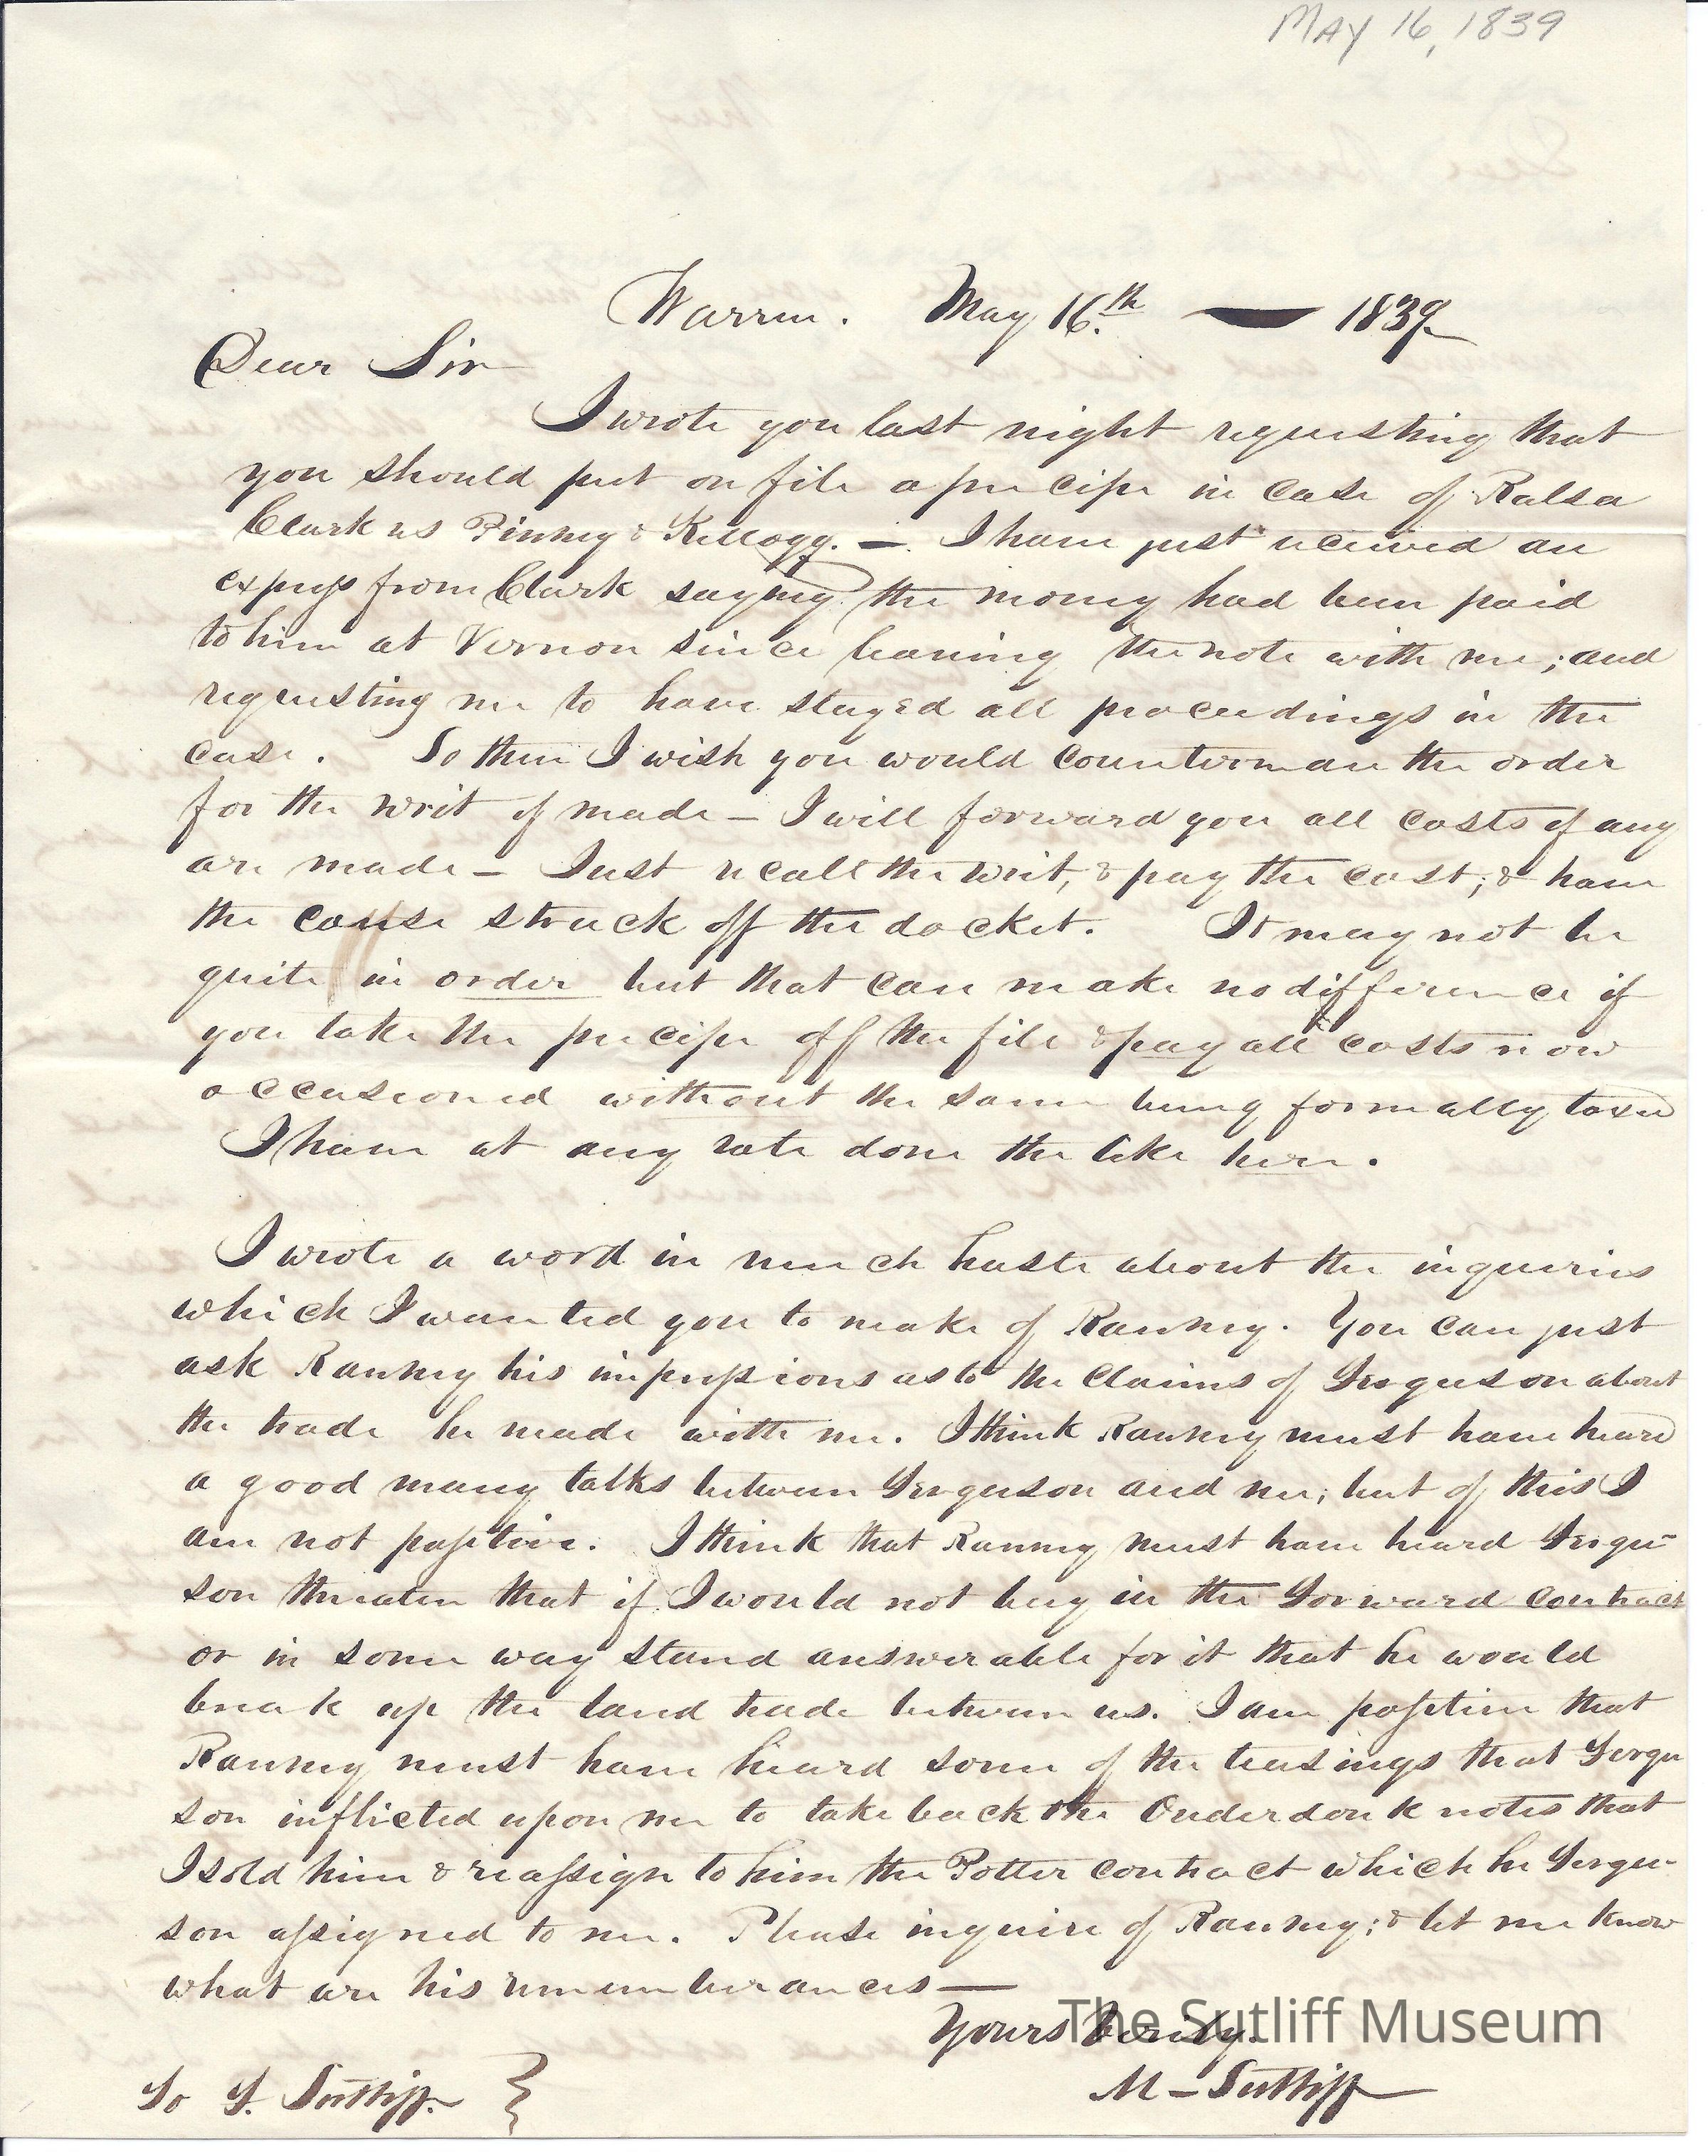 MAY 16, 1839
Warren. May 16.th — 1839
Dear Sir
I wrote you last night requesting that
you should put on file a precipe in case of Ralsa
Clark vs Pinney & Kellogg. — I have just received an
express from Clark saying the money had been paid
to him at Vernon since leaving the note with me; and
requesting me to have stayed all proceedings in the
case. So then I wish you would counterman the order
for the writ if made — I will forward you all costs if any
are made — Just recall the writ, & pay the cost; & have
the cause struck off the docket. It may not be
quite in order but that can make no difference if
you take the precipe off the file & pay all costs now
occasioned without the same being formally taxed
I have at any rate done the like here.
I wrote a word in much haste about the inquiries
which I wanted you to make of Ranney. You can just
ask Ranney his impressions as to the claims of Ferguson about
the trade he made with me. I think Ranney must have heard
a good many talks between Ferguson and me; but of this I
am not positive. I think that Ranney must have heard Fergu-
son threaten that if I would not buy in the Forward contract
or in some way stand answerable for it that he would
break up the land trade between us. I am positive that
Ranney must have heard some of the teasings that Fergu
son inflicted upon me to take back the Onderdonk notes that
I sold him & reassign to him the Potter contract which he Fergu-
son assigned to me. Please inquire of Ranney; & let me know
what are his rememberances —
Yours Verily.
M — Sutliff
To F. Sutliff.
The Sutliff Museum